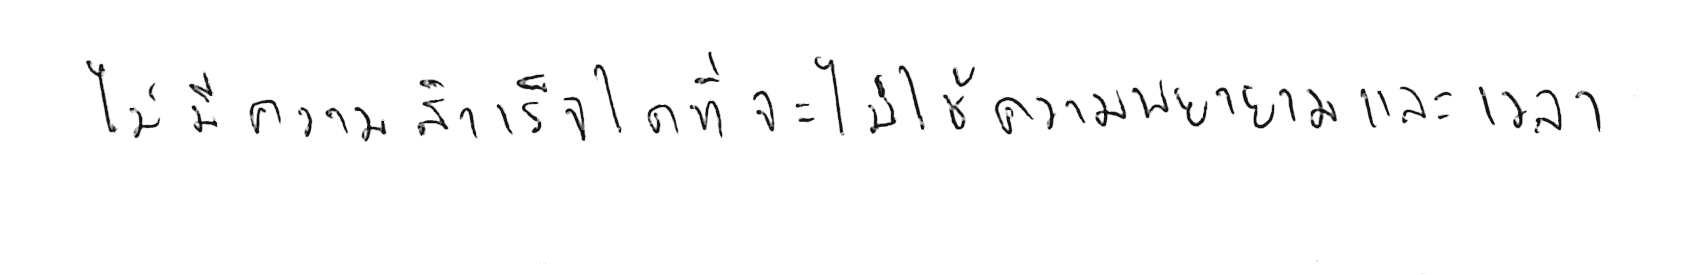 ไม่มีความสำเร็จใดที่จะไม่ใช้ความพยายามและเวลา